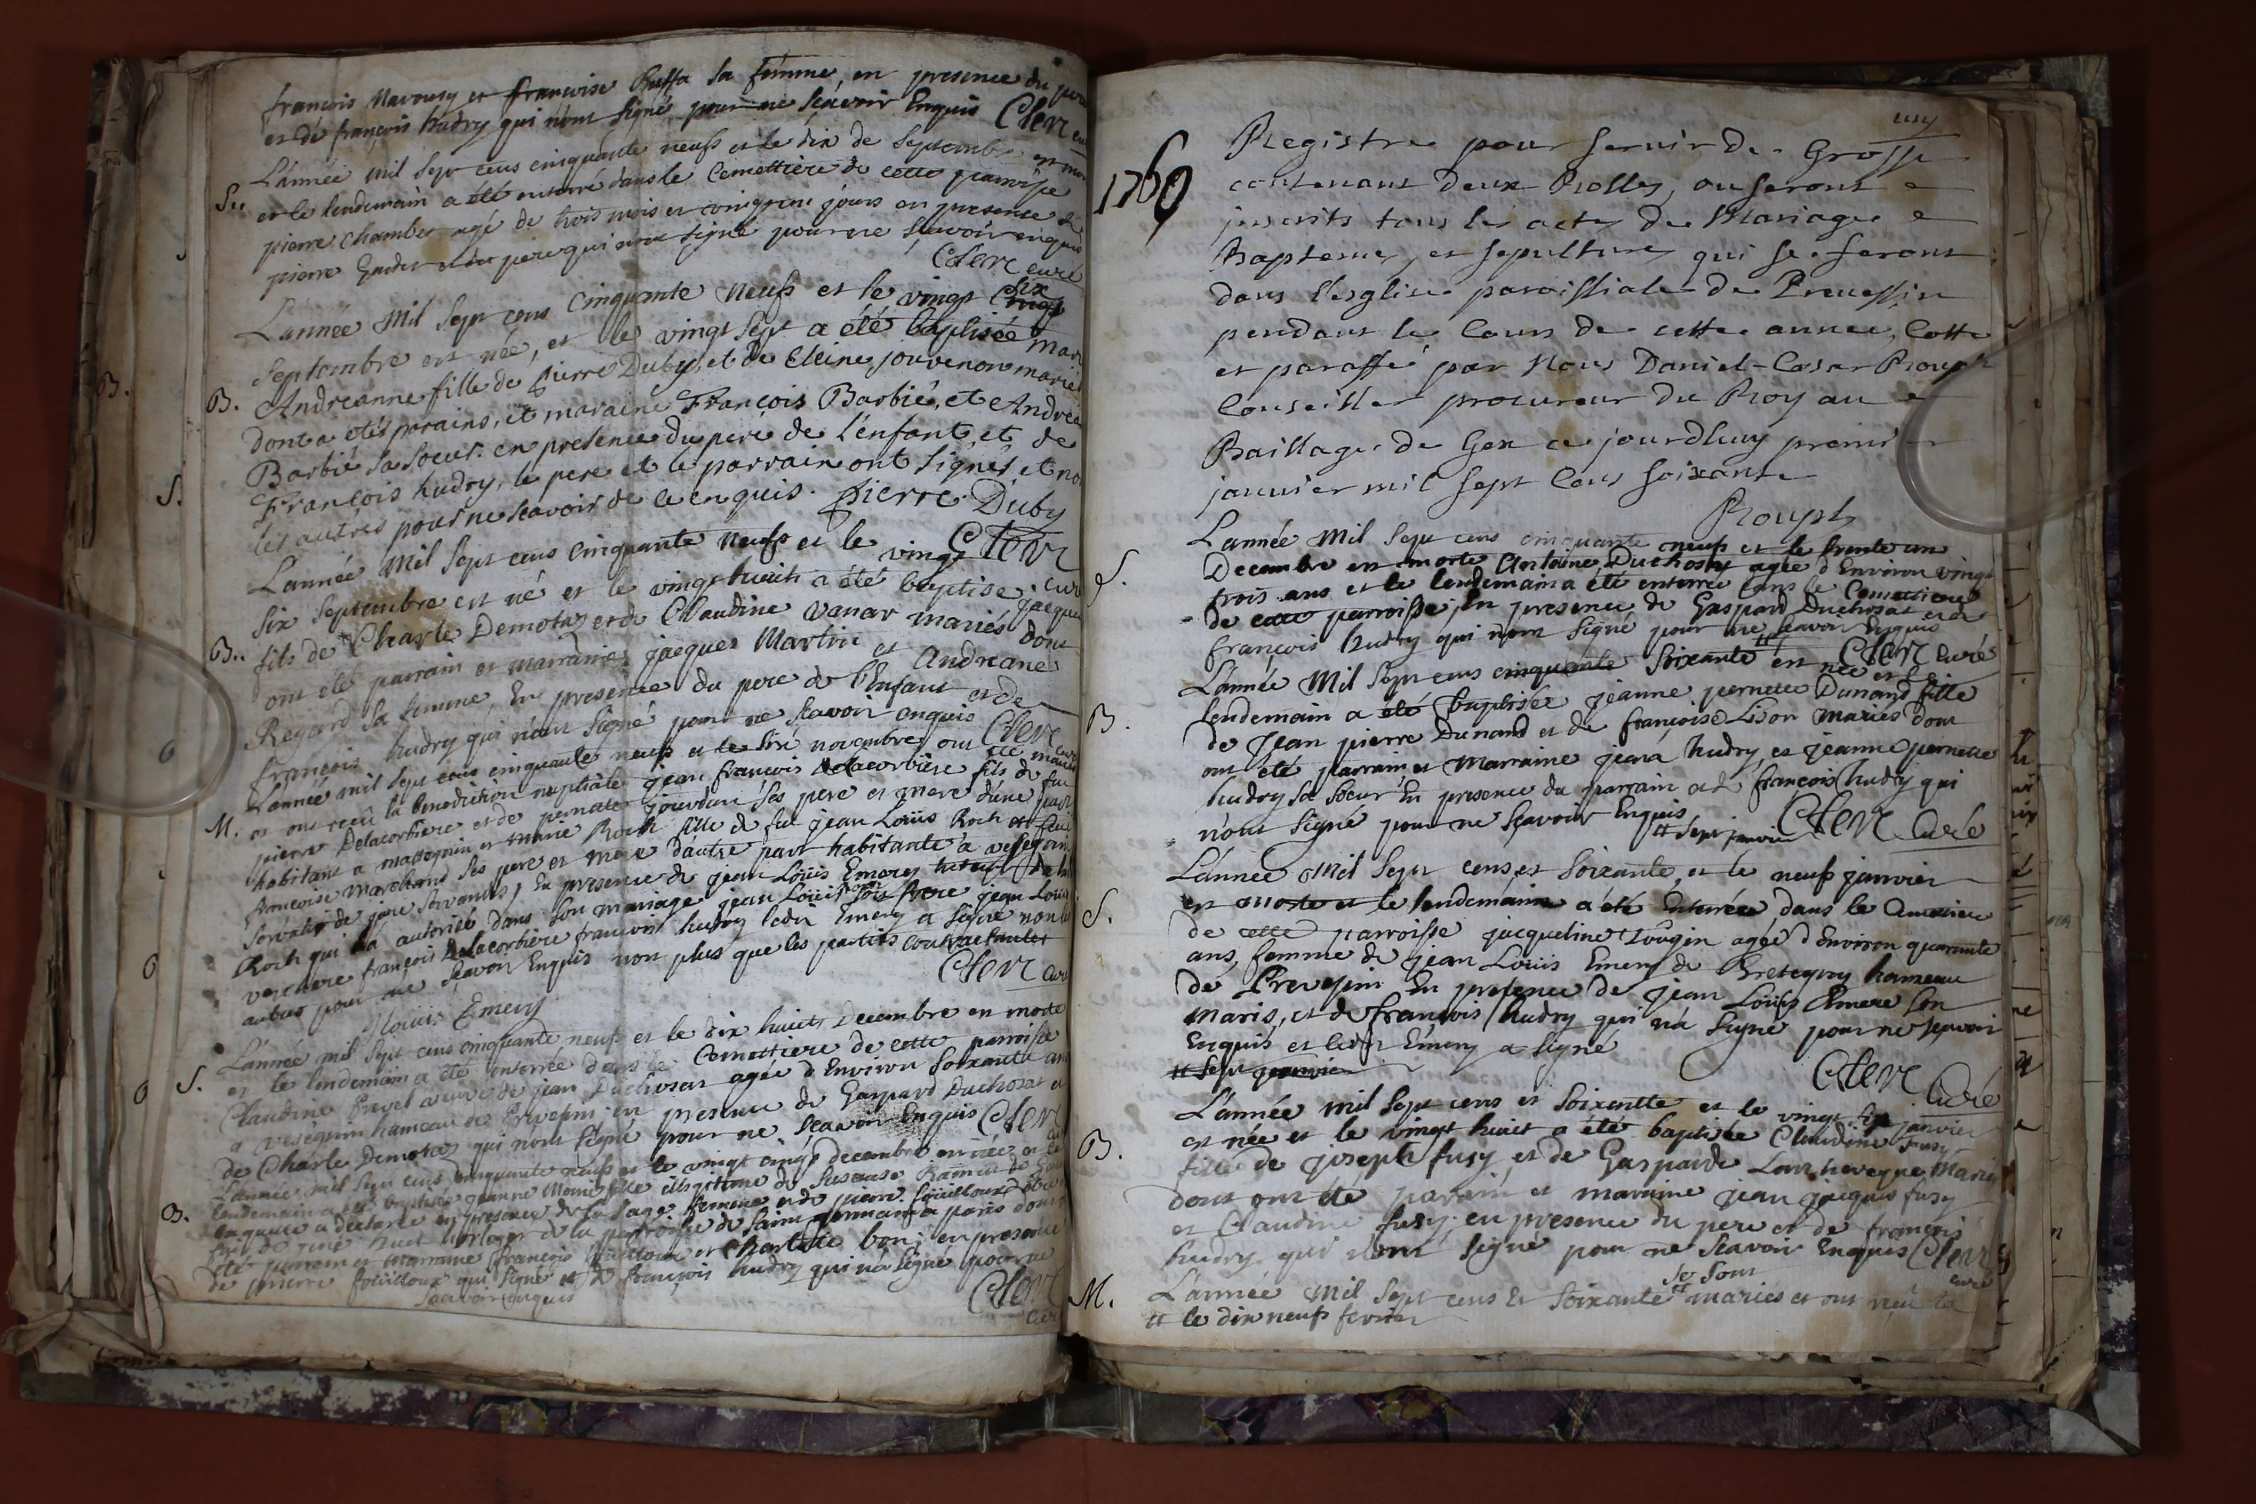 françois Navoury et françoise Buffa sa femme, en presence du pere
et de françois hudry qui n'ont signés pour ne sçavoir Enquis Clerc curé
L'année mil sept cens cinquante neufs et le dix de Septembre est mort
S.. et le lendemain a été enterré dans le Cemettiere de cette parroisse
pierre Chamber agé de trois mois et cinq jours en presence de
pierre et du pere qui n'ont signé pour ne sçavoir enquis
Clerc curé
L'année Mil Sept cens Cinquante Neufs et le vingt Cinq six
Septembre est née, et le vingt sept a été baptisée
B. Andreanne fille de Pierre Duby, et de Cleine jouvenon mariés
dont a etés parains, et maraine François Barbié, et Andrea
Barbié sa soeur. en presence du pere de l'enfant, et de
François hudry, le pere et le parrain ont signés et non
les autres pour ne scavoir de ce enquis. Pierre Duby
Clerc curé
L'année Mil Sept cens Cinquante Neufs et le vingt
Six Septembre est né et le vingt huit a été baptise jacque
B.. fils de Charle Demotaz et de Claudine Vanar mariés dont
ont été parrain et marraine jacques Martin et Andreane
Regard sa femme, En presence du pere de l'Enfant et de
françois hudry qui n'ont signé pour ne scavoir enquis Clerc curé
L'année mil sept cens cinquante neufs et le six novembre ont été mariés
M. et ont reçu la benediction nuptiale jean françois Delacorbiere fils de fut
pierre Delacorbiere et de pernette jourdan ses pere et mere d'une part
habitant a et marie Roch fille de fut jean Louis Roch et de
françoise marchand ses pere et mere d'autre part habitante a vesegnin
de servants, En presence de jean Louis Emery
Roch qui l'a autorisé dans son mariage jean Louis son frere jean Louis
verchere françois Delacorbiere françois hudry ledit Emery a signé non les
autres pour ne sçavoir Enquis non plus que les parties contractantes
Clerc curé
j Louis Emery
L'année mil sept cens cinquante neufs et le dix huict Decembre est morte
S. et le lendemain a été enterrée dans le Cemettiere de cette parroisse
Claudine Prevel veuve de jean Duchosat agée d'Environ soixante ans
a veségnin hameau de Prevesin en presence de Gaspard Duchosat et
de Charle Demotaz qui n'ont signé pour ne sçavoir Enquis Clerc
L'année mil sept cens cinquante neufs et le vingt cinq decembre est née et le
B. lendemain a été baptisée jeanne Marie fille illegitime de
laquelle a declaré en presence de la sage femme et de pierre fouilloux
fils de horloger de la parroisse de saint germain a paris dont
été parrain et marraine françois fouilloux et Charlotte bon; en presence
de pierre fouilloux qui signé et de françois hudry qui n'a signé pour ne
sçavoir enquis Clerc
curé
1760
Registre pour servir de Grosse
contenant deux Rolles, ou seront
inscrits tous les actes de Mariages
Baptemes, et sepultures qui se feront
dans l'esglise paroissiale de Prevessin
pendant le Cours de cette année, Cotte
et paraffé par Nous Daniel-Cesar Rouph
Conseiller procureur du Roy au
Baillage de Gex ce jourdhuy premier
janvier mil sept Cens soixante
Rouph
L'année Mil Sept cens cinquante neufs et le trente un
S. Decembre est morte Antoine Duchosat agée d'Environ vingt
trois ans et le lendemain a été enterrée dans le Cemettiere
de cette parroisse, En presence de Gaspard Duchosat et de
françois hudry qui n'ont signé pour ne sçavoir Enquis
Clerc curé
L'année Mil Sept cens cinquante soixante # est née et le
B. lendemain a été baptisée jeanne pernette Dunand fille
de Jean pierre Dunand et de françoise Lison mariés dont
ont été parrain et marraine jean hudry, et jeanne pernette
hudry sa soeur En presence du parrain et de françois hudry qui
n'ont signé pour ne sçavoir Enquis
# sept janvier Clerc Curé
L'année Mil Sept cens et soixante, et le neufs janvier
S. est morte et le lendemain a été Enterrée dans le Cemettiere
de cette parroisse jacqueline Tougin agée d'Environ quarante
ans, femme de jean Louis Emery de Bretegny hameau
de Prevesin En presence de jean Louis Emere son
Maris, et de françois hudry qui n'a signé pour ne sçavoir
Enquis et ledit Emery a signé
# sept janvier
Clerc Curé
L'année mil sept cens et soixentte et le vingt six janvier
B. est née et le vingt huict a été baptisée Claudine fusy
fille de joseph fusy et de Gasparde Lontheveque Mariés
dont ont été parain et maraine jean jacques fusy
et Claudine fusy. en presence du pere et de françois
hudry qui n'ont signé pour ne scavoir Enquis Clerc
curé
M. L'année Mil Sept cens Et soixante # se sont mariés et ont reçu la
# le dix neufs fevrier